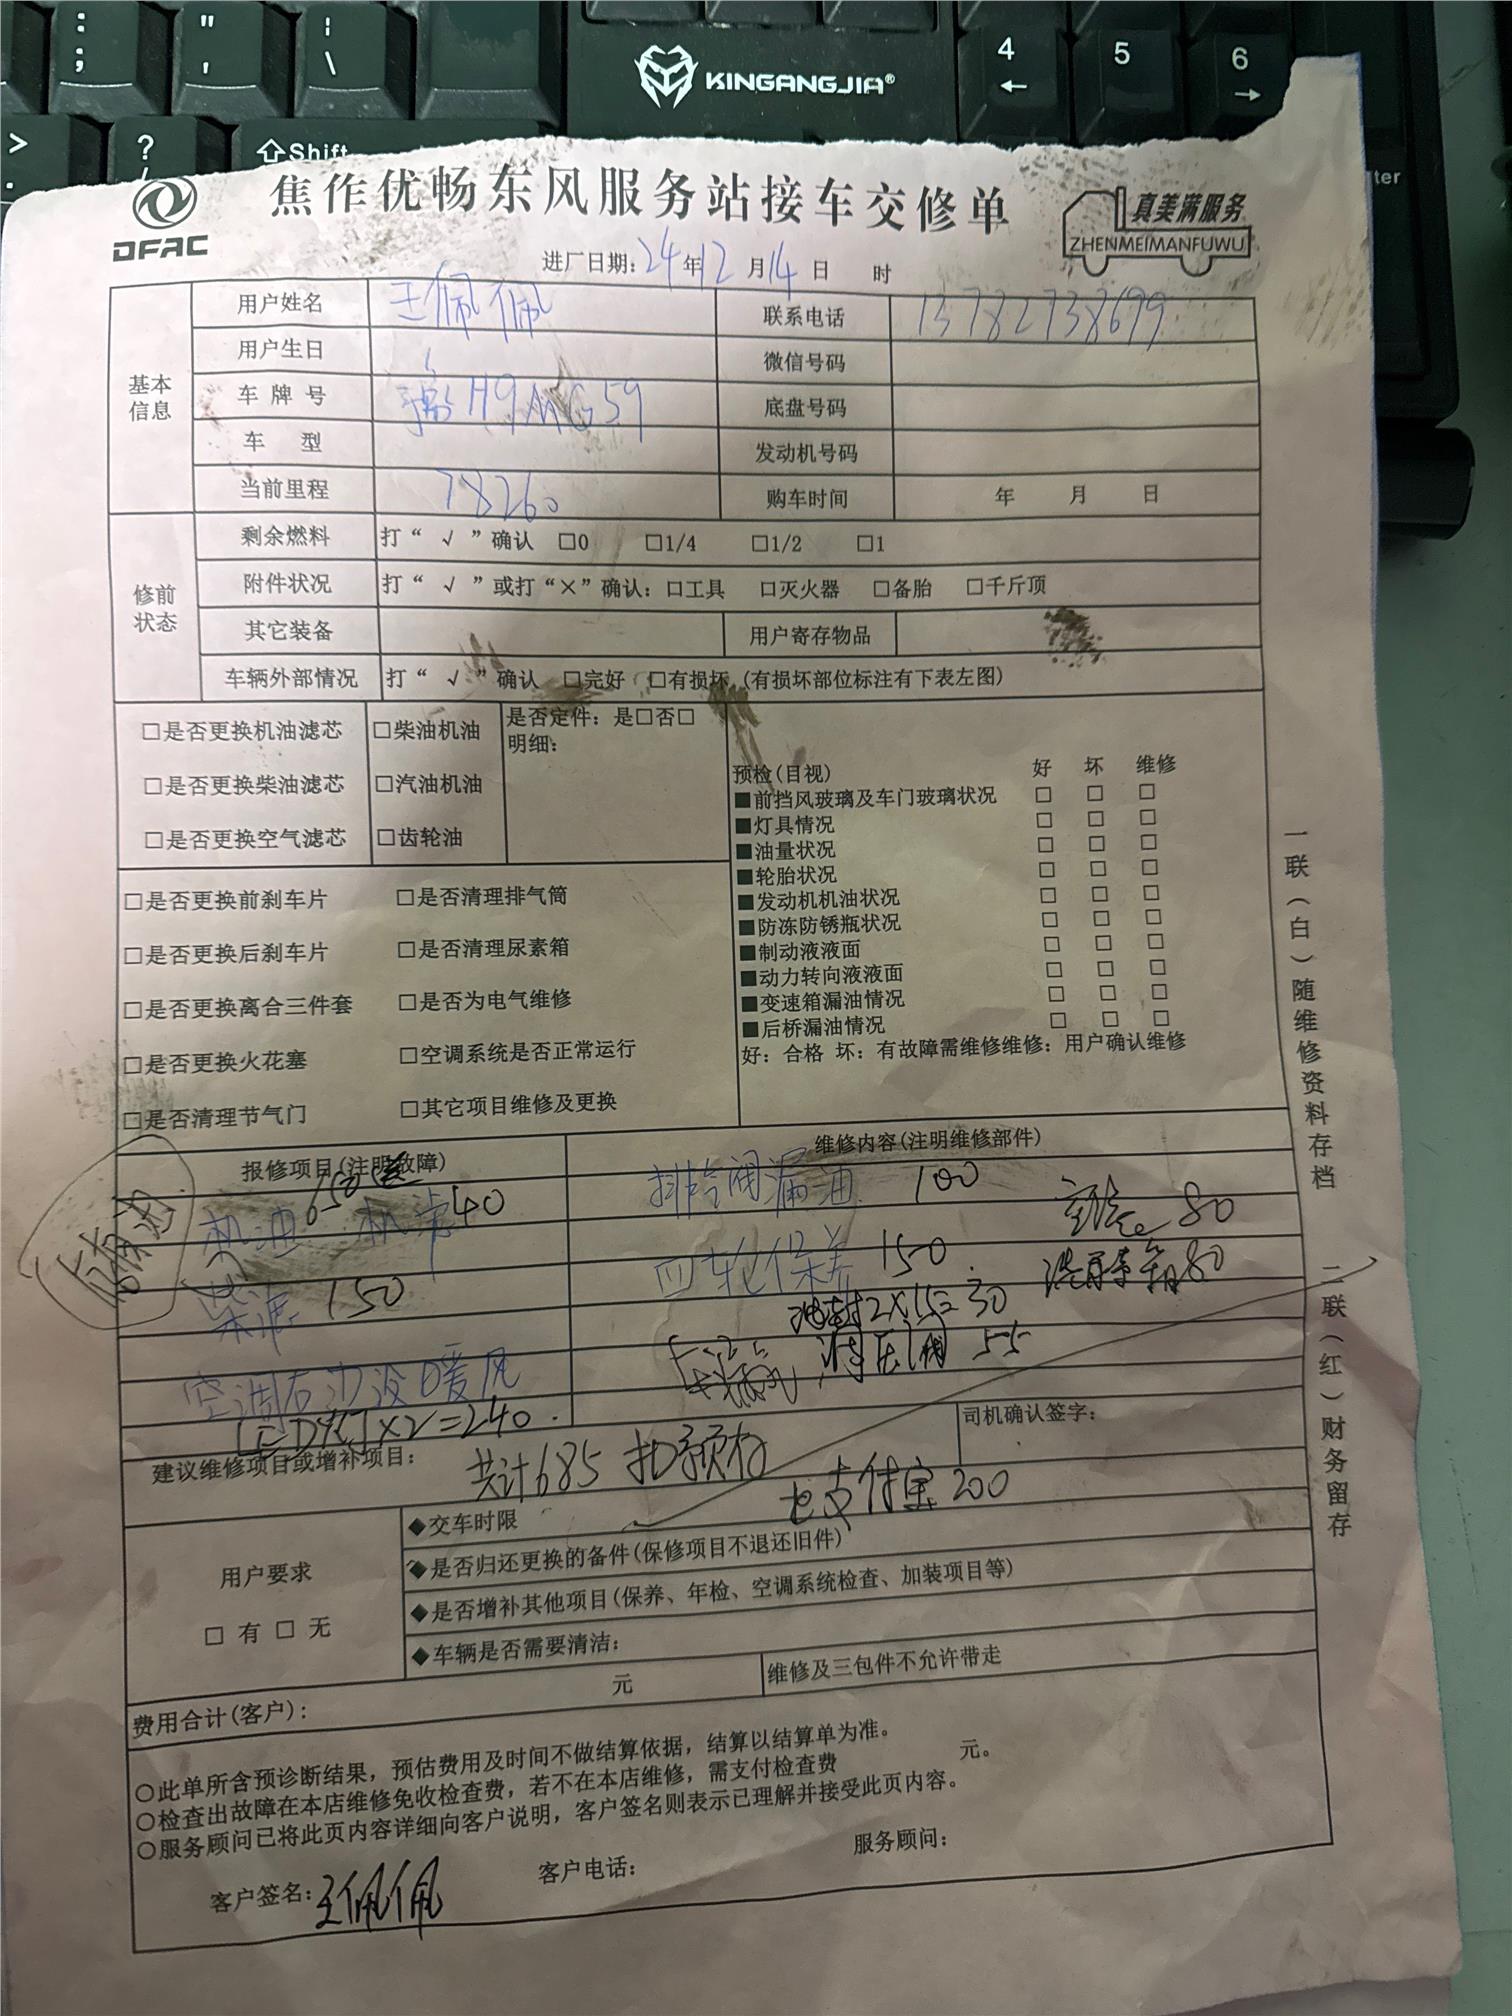 : ;
" '
| \
KINGANGJIA®
4 ←
5
6 →
> .
? /
⇧Shift
ter
DFAC
焦作优畅东风服务站接车交修单
真美满服务
ZHENMEIMANFUWU
进厂日期: 24年12月14日 时
基本信息
用户姓名 王佩佩 联系电话 13782738699
用户生日 微信号码
车牌号 豫H9MG59 底盘号码
车 型 发动机号码
当前里程 78260 购车时间 年 月 日
修前状态
剩余燃料 打“ √ ”确认 □0 □1/4 □1/2 □1
附件状况 打“ √ ”或打“×”确认: □工具 □灭火器 □备胎 □千斤顶
其它装备 用户寄存物品
车辆外部情况 打“ √ ”确认 □完好 □有损坏 (有损坏部位标注有下表左图)
□是否更换机油滤芯 □柴油机油 是否定件: 是□否□
明细:
□是否更换柴油滤芯 □汽油机油
□是否更换空气滤芯 □齿轮油
预检(目视) 好 坏 维修
■前挡风玻璃及车门玻璃状况 □ □ □
■灯具情况 □ □ □
■油量状况 □ □ □
■轮胎状况 □ □ □
■发动机机油状况 □ □ □
■防冻防锈瓶状况 □ □ □
■制动液液面 □ □ □
■动力转向液液面 □ □ □
■变速箱漏油情况 □ □ □
■后桥漏油情况 □ □ □
好: 合格 坏: 有故障需维修维修: 用户确认维修
□是否更换前刹车片 □是否清理排气筒
□是否更换后刹车片 □是否清理尿素箱
□是否更换离合三件套 □是否为电气维修
□是否更换火花塞 □空调系统是否正常运行
□是否清理节气门 □其它项目维修及更换
报修项目(注明故障) 维修内容(注明维修部件)
机油 650送 机滤40
柴滤 150
空调右边没暖风
LED灯×2=240.
排冷阀漏油 100
空滤 80
四轮保养 150
洗尿素箱80
油封2×15=30
调压阀 55
建议维修项目或增补项目:
共计685 扣预存
司机确认签字:
支付宝200
用户要求
□ 有 □ 无
◆交车时限
◆是否归还更换的备件(保修项目不退还旧件)
◆是否增补其他项目(保养、年检、空调系统检查、加装项目等)
◆车辆是否需要清洁:
费用合计(客户): 元 维修及三包件不允许带走
○此单所含预诊断结果, 预估费用及时间不做结算依据, 结算以结算单为准。
○检查出故障在本店维修免收检查费, 若不在本店维修, 需支付检查费 元。
○服务顾问已将此页内容详细向客户说明, 客户签名则表示已理解并接受此页内容。
客户签名: 王佩佩 客户电话: 服务顾问:
一联(白)随维修资料存档 二联(红)财务留存